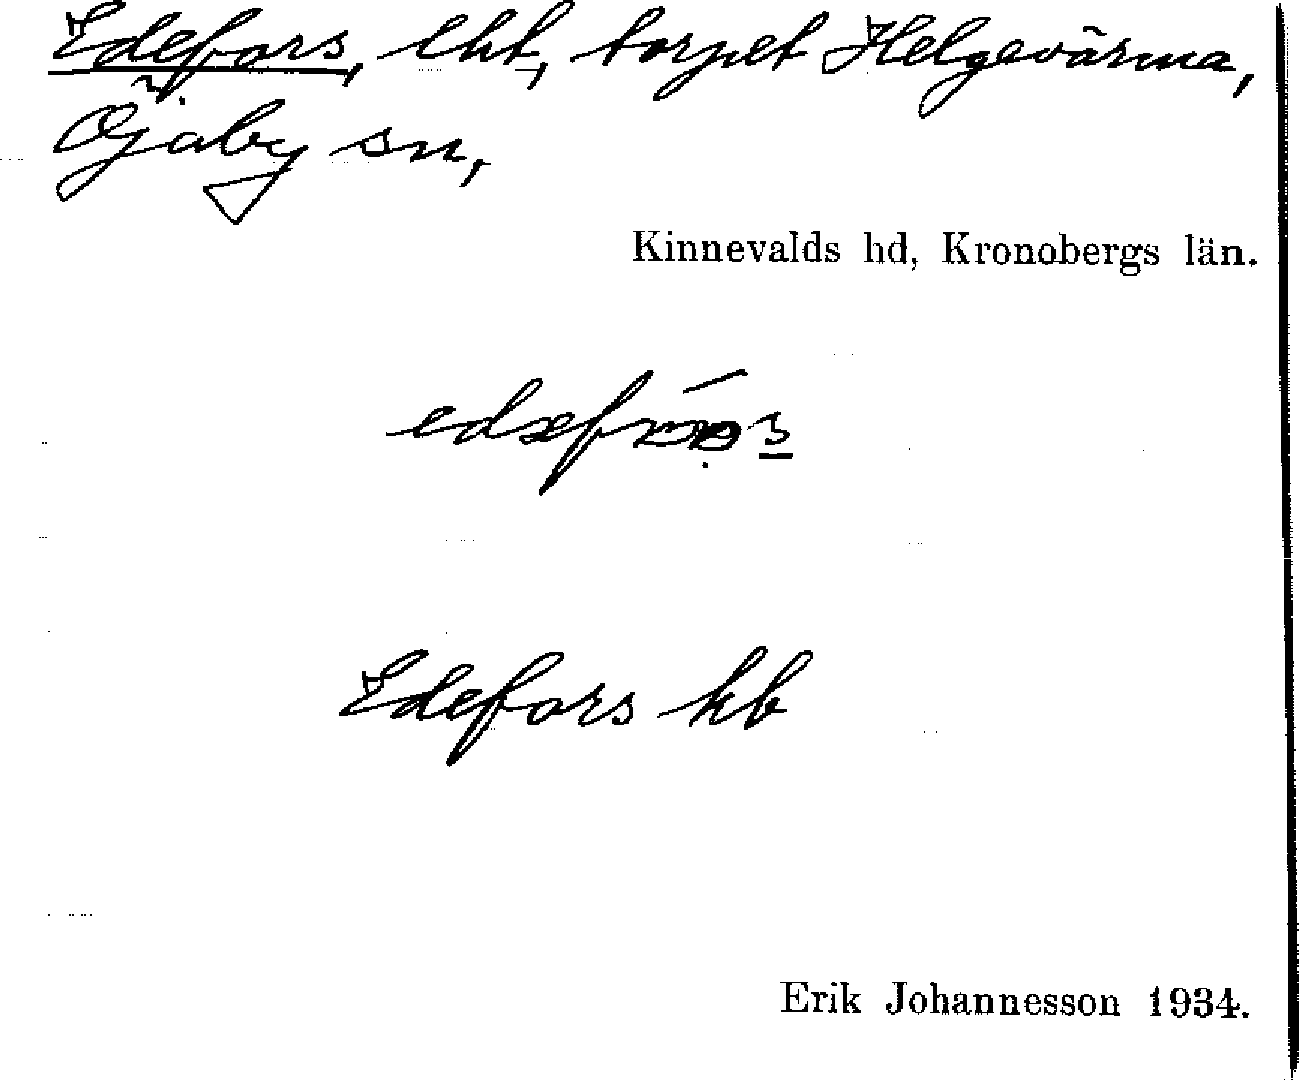 Edefors, lht, torpet Helgevärma,
Öjaby sn,
Kinnevalds hd, Kronobergs län.
Edefors kb
Erik Johannesson 1934.